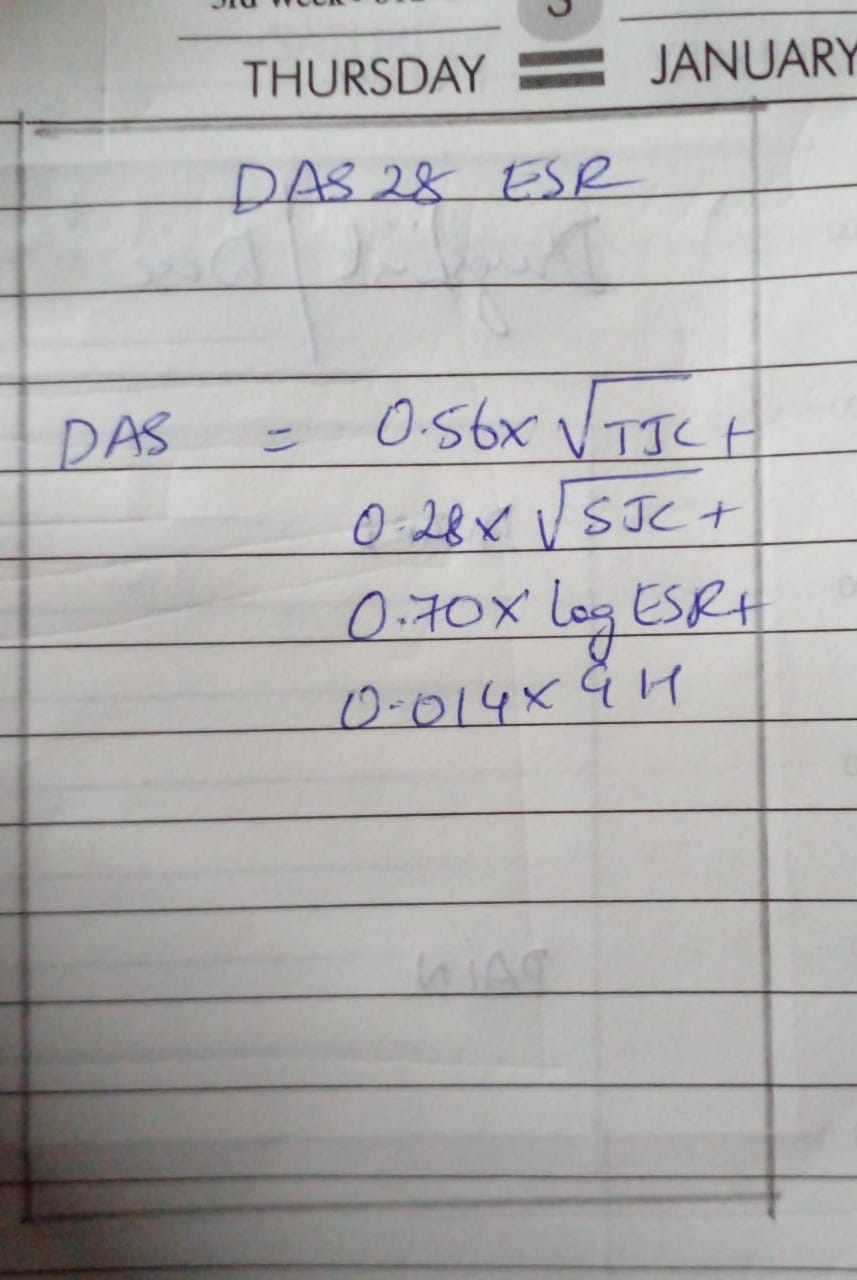 THURSDAY JANUARY
DAS 28 ESR
DAS = 0.56x √TJC +
0.28x √SJC +
0.70x log ESR+
0.014x GH
PAIN